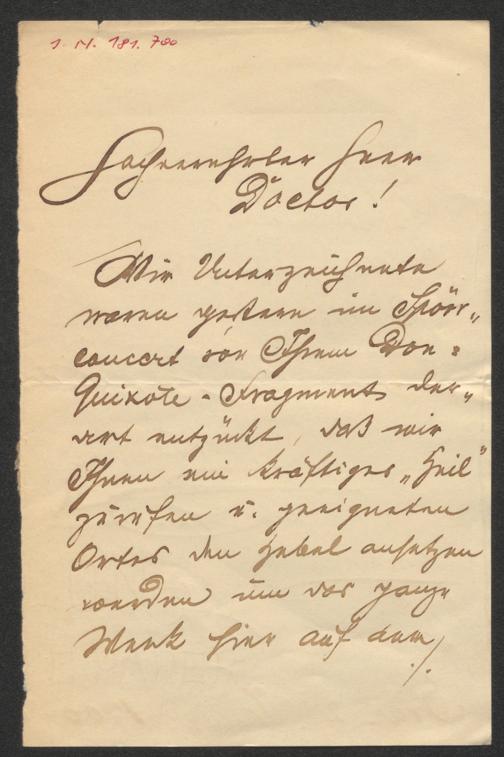 I. N. 181.780
Hochverehrter Herr
Doctor!
Wir Unterzeichnete
waren gestern im Spöör„
concert von Ihrem Don-
Quixote-Fragment der„
art entzückt, daß wir
Ihnen ein kräftiges „Heil“
zurufen u. geeigneten
Ortes den Hebel ansetzen
werden um das ganze
Werk hier auf dem
./.